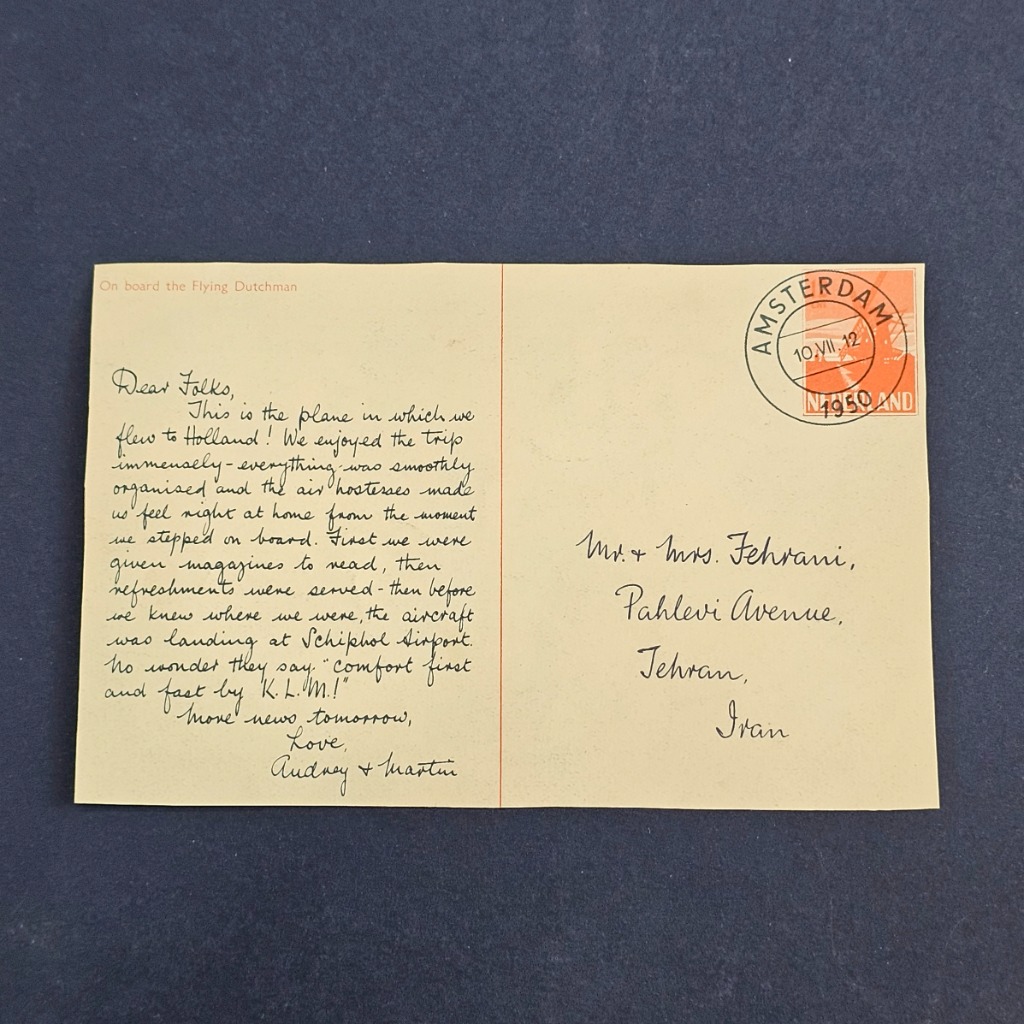 On board the Flying Dutchman
Dear Folks,
This is the plane in which we
flew to Holland! We enjoyed the trip
immensely - everything was smoothly
organised and the air hostesses made
us feel right at home from the moment
we stepped on board. First we were
given magazines to read, then
refreshments were served - then before
we knew where we were, the aircraft
was landing at Schiphol Airport.
No wonder they say "comfort first
and fast by K.L.M.!"
More news tomorrow,
Love,
Audrey + Martin
AMSTERDAM
10.VII.12
1950
NEDERLAND
Mr. + Mrs. Tehrani,
Pahlevi Avenue,
Tehran,
Iran